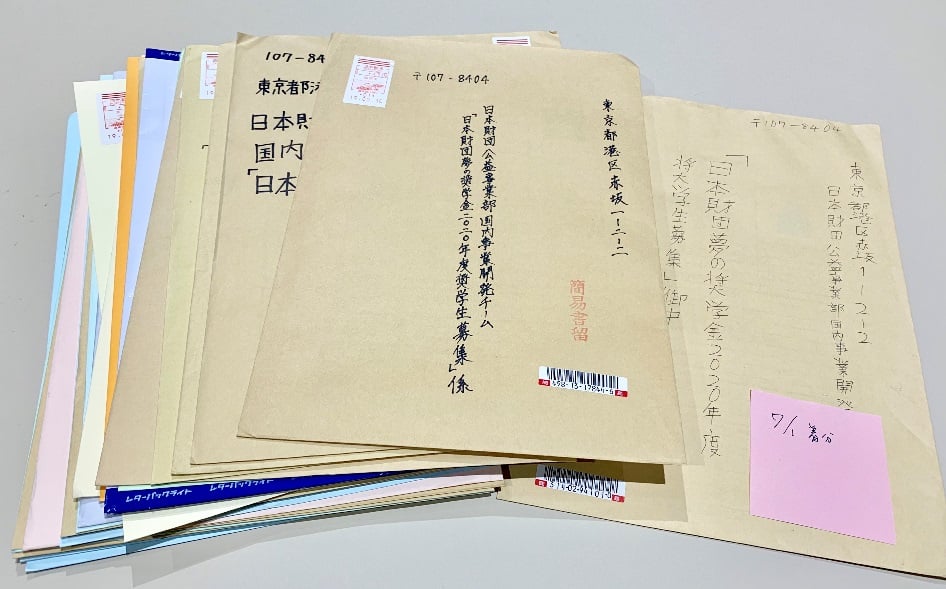 107-84
東京都港
日本財
国内
「日本
〒107-8404
東京都港区赤坂一-二-二
日本財団 公益事業部 国内事業開発チーム
「日本財団夢の奨学金二〇二〇年度奨学生募集」係
簡易書留
498-13-17844-5
〒107-8404
東京都港区赤坂1-2-2
日本財団公益事業部国内事業開発
「日本財団夢の奨学金2020年度
奨学生募集」御中
7/1 着分
レターパックライト レターパックライト